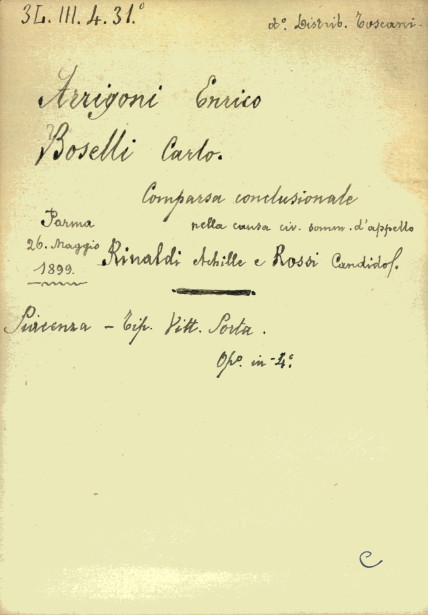 3L. III. 4. 31.º
dº. Distrib. Toscani.
Arrigoni Enrico
Boselli Carlo.
Comparsa conclusionale
nella causa civ. somm. d'appello
Parma
26. Maggio
1899.
Rinaldi Achille e Rossi Candido
Piacenza - Tip. Vitt. Porta.
Opº. in-4º.
C